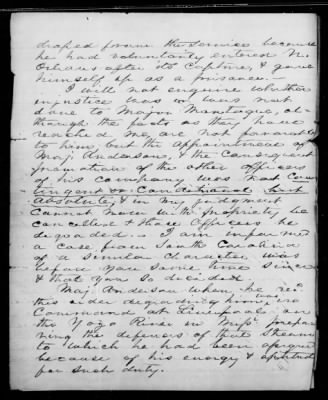 droped from the service because
he had voluntarily entered N.
Orleans after its capture, & gave
himself up as a prisoner.—
I will not enquire whether
injustice was or was not
done to Major Montague, al-
though the facts as they have
reached me, are not favorable
to him, but the appointment of
Maj. Anderson, & the consequent
promotion of the other officers
of his company was not con-
tingent or conditional but
absolute, & in my judgment
cannot now with propriety be
cancelled & those officers be
degraded. I am informed
a case from South Carolina
of a similar character was
before you some time since
& that you so decided.
Maj. Anderson when he recd
this order degrading him was in
command at on
the Yazo River in Missi. prepar-
ing the defences of that stream
to which he had been assigned
because of his energy & aptitude
for such duty.